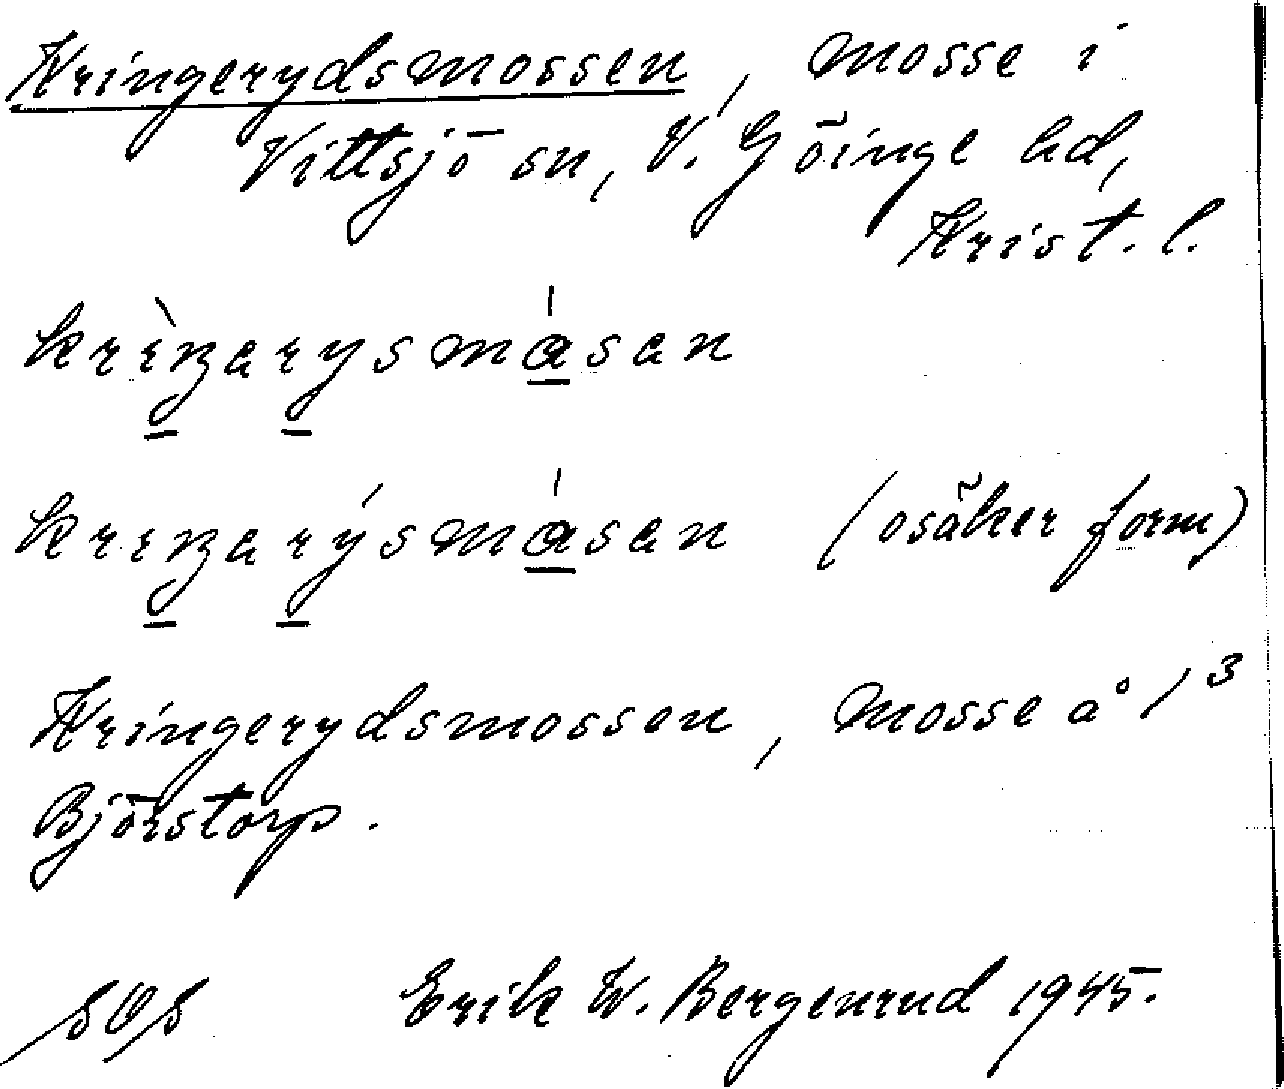 Kringerydsmossen, mosse i
Vittsjö sn, V. Göinge hd,
Krist. l.
krìŋarysmásan
krıŋarýsmásan (osäker form)
Kringerydsmossen, mosse å 1³
Björstorp.
SOS Erik W. Bergenrud 1945.